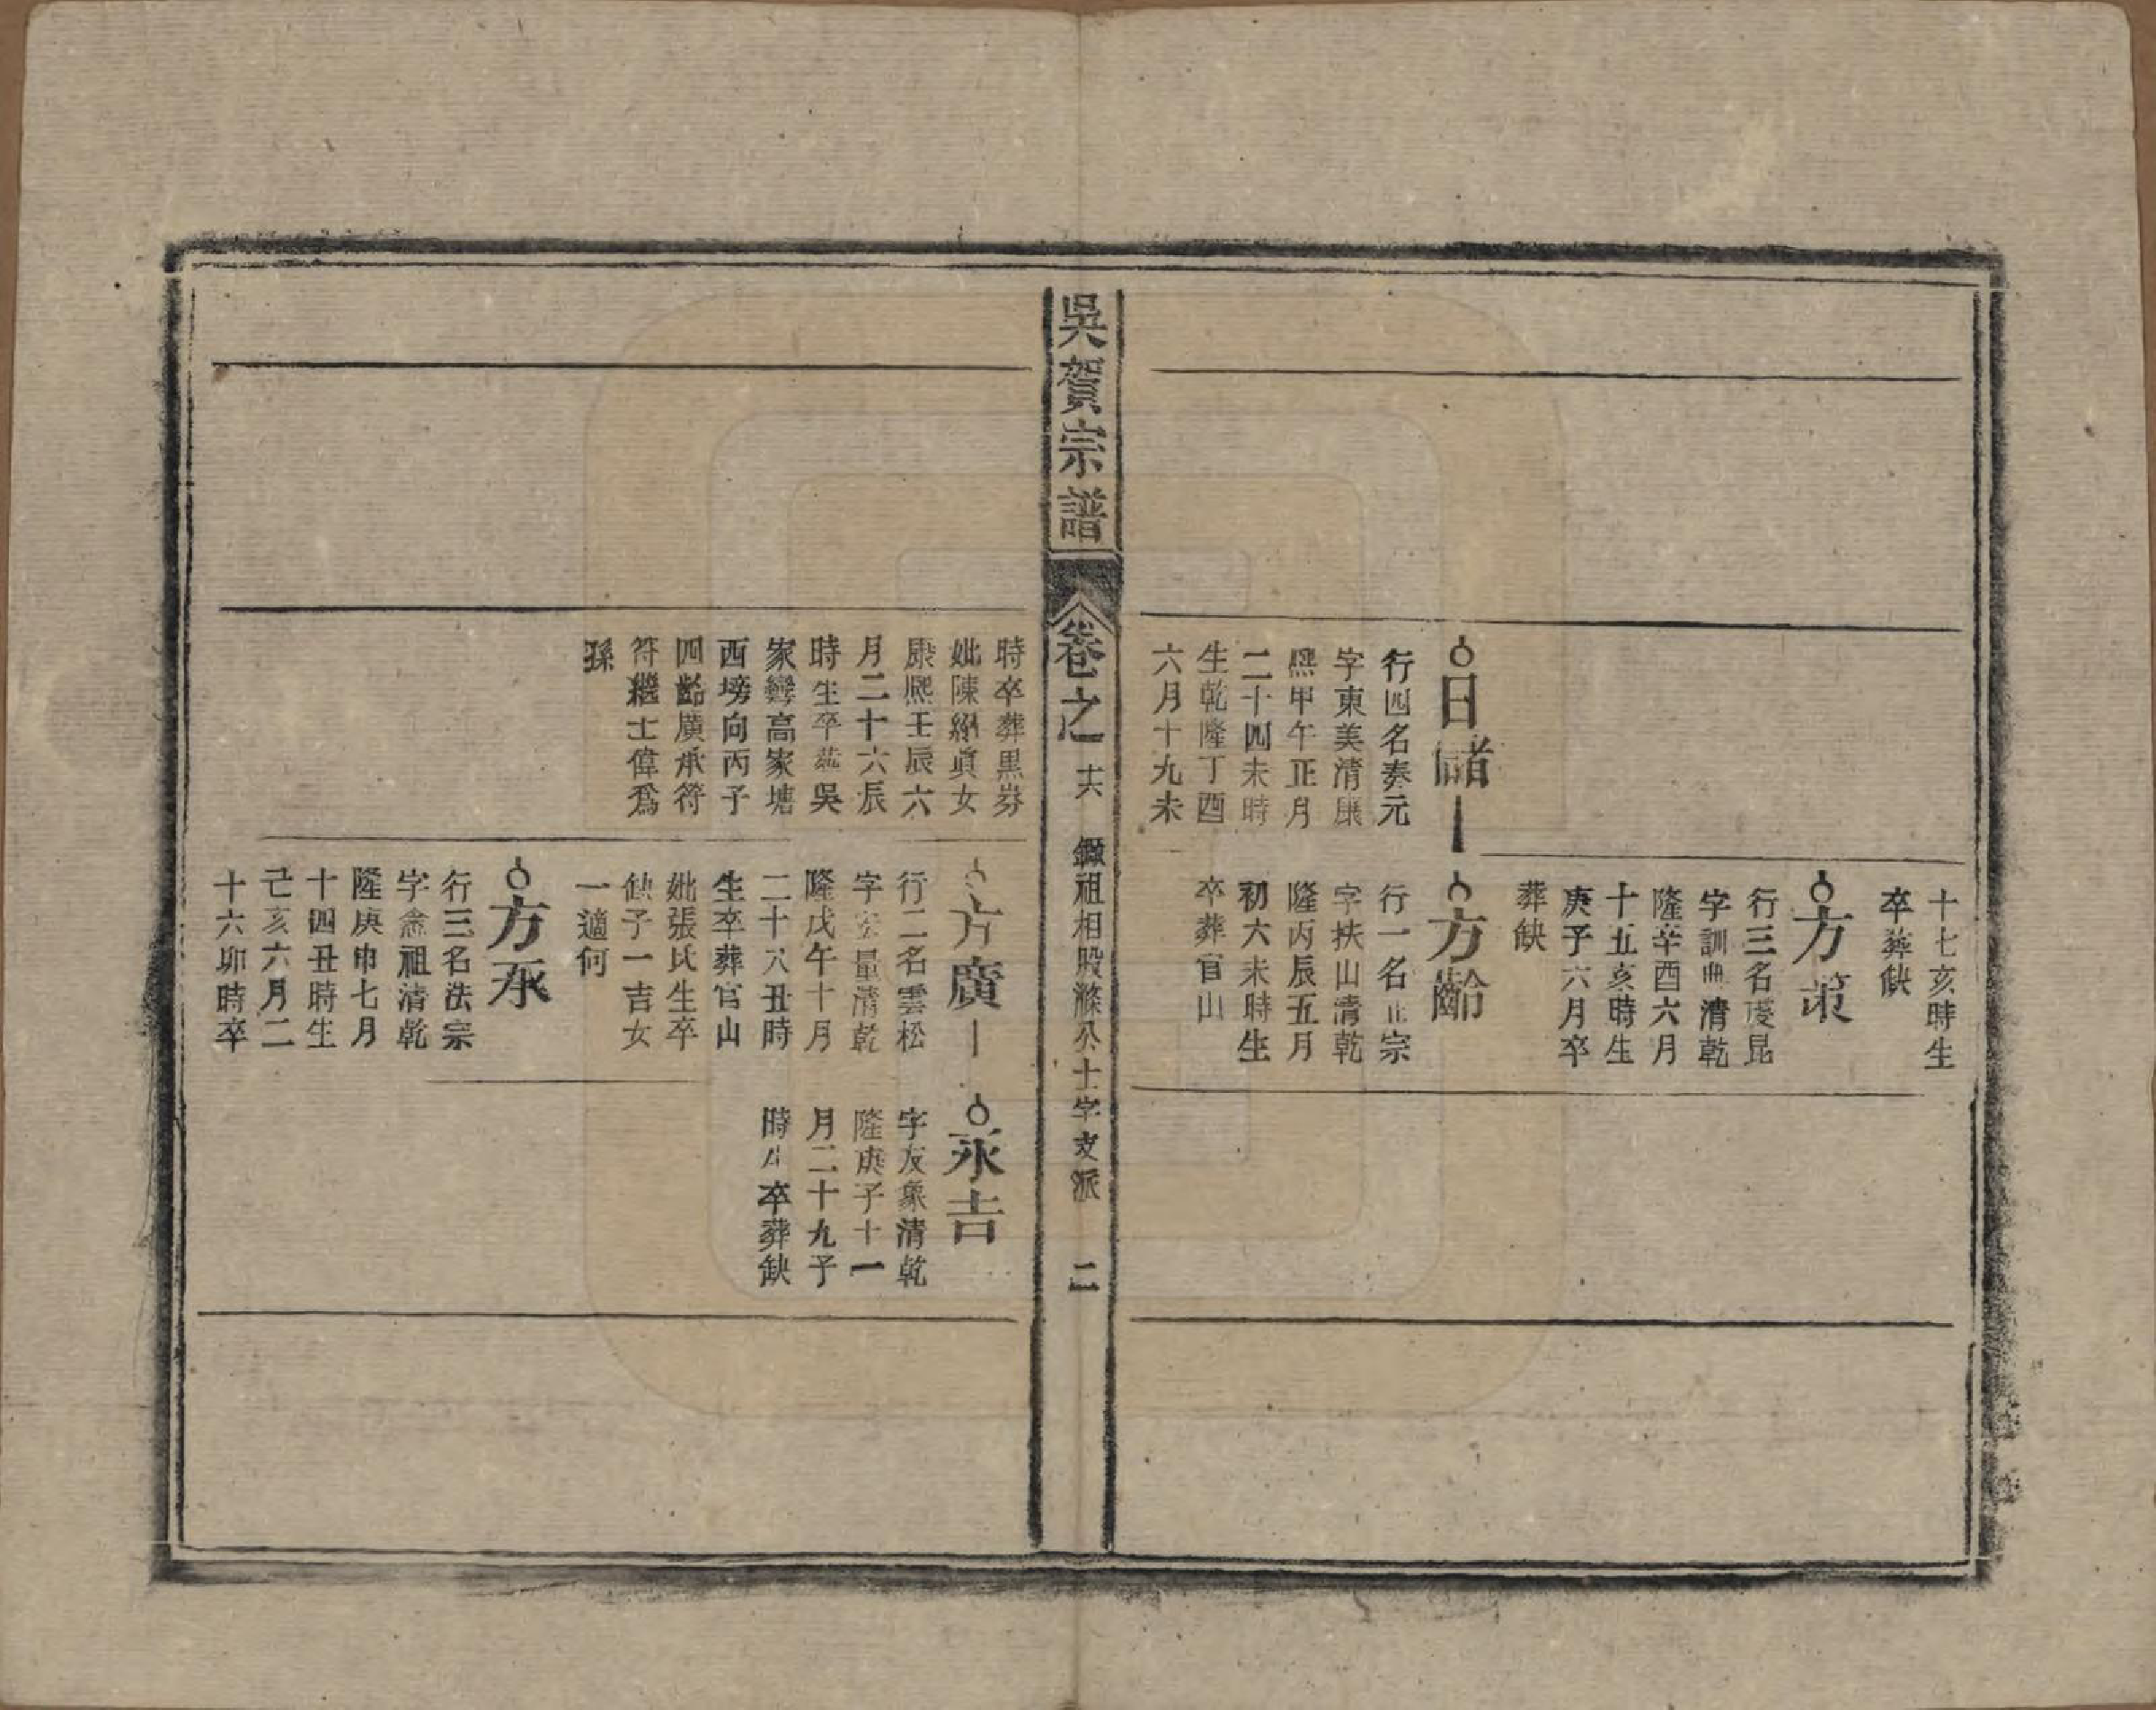 十七亥時生
卒葬缺
方策
行三名
字訓典清乾
隆辛酉六月
十五亥時生
庚子六月卒
葬缺
日儲
行四名奏元
字東美清康
熙甲午正月
二十四未時
生乾隆丁酉
六月十九未
方齡
行一名正宗
字扶山清乾
隆丙辰五月
初六未時生
卒葬官山
吳賀宗譜
卷之十六
祖相殷滌公士字支派
二
時卒葬黑
妣陳絹眞女
康熙壬辰六
月二十六辰
時生卒葬吳
家灣高家塘
西塝向丙子
四齡廣承符
符繼士偉爲
孫
方廣
行二名雲松
字 量清乾
隆戊午十月
二十八丑時
生卒葬官山
妣張氏生卒
缺子一吉女
一適何
永吉
字友象清乾
隆庚子十一
月二十九子
時生卒葬缺
方承
行三名法宗
字念祖清乾
隆庚申七月
十四丑時生
己亥六月二
十六卯時卒